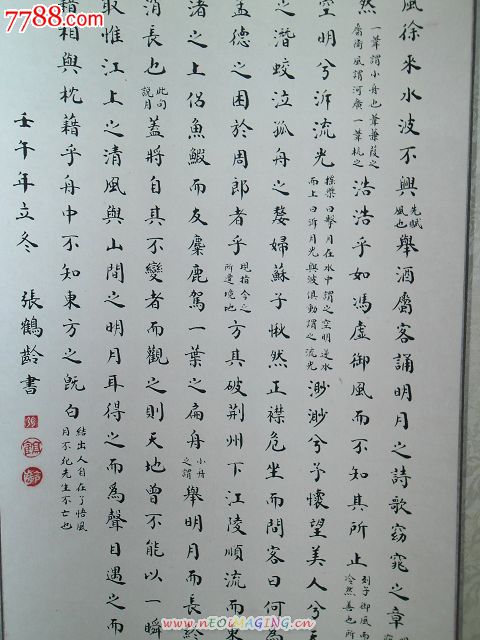 7788.com
风徐来水波不興先賦風也舉酒屬客誦明月之詩歌窈窕之章
然一葦謂小舟也葦蒹葭之屬衛風謂河廣一葦杭之浩浩乎如馮虛御風而不知其所止列子御風而泠然善也所
空明兮泝流光搖槳曰擊月在水中謂之空明逆水而上曰泝月光與波俱動謂之流光渺渺兮予懷望美人兮
之潛蛟泣孤舟之嫠婦蘇子愀然正襟危坐而問客曰何為
孟德之困於周郎者乎現指今之所遇境地方其破荆州下江陵順流而東
渚之上侶魚鰕而友麋鹿駕一葉之扁舟小舟之謂舉明月而長終
消長也此句說月蓋將自其不變者而觀之則天地曾不能以一瞬
取惟江上之清風與山間之明月耳得之而為聲目遇之而
相與枕藉乎舟中不知東方之既白結出人自在了悟風月不死先生不亡也
壬午年立冬 張鶴齡書
www.NEOIMAGING.cn